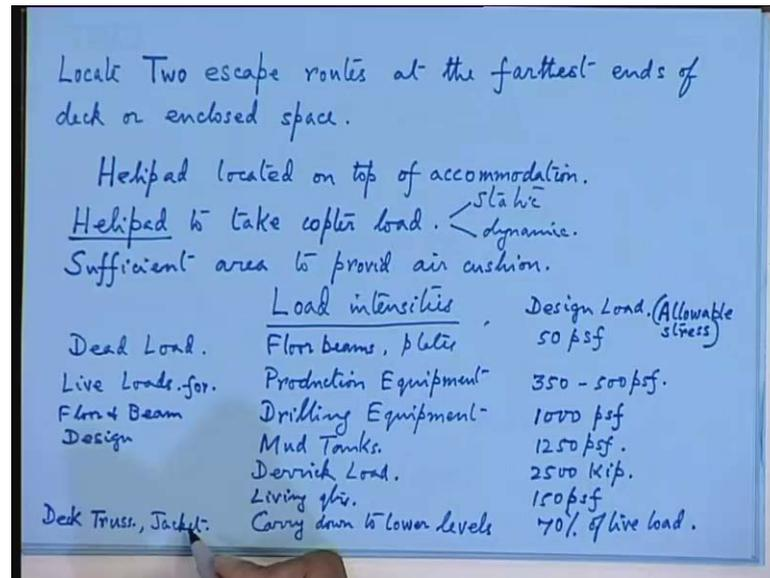 Locate Two escape routes at the farthest ends of
deck or enclosed space.
Helipad located on top of accommodation.
Helipad to take copter load. static
dynamic.
Sufficient area to provid air cushion.
Load intensities, Design Load. (Allowable stress)
Dead Load. Floor beams, plates 50 psf
Live Loads. for. Production Equipment 350 - 500 psf.
Floor & Beam Drilling Equipment 1000 psf
Design Mud Tanks. 1250 psf.
Derrick Load. 2500 Kip.
Living qtrs. 150 psf
Deck Truss., Jacket. Carry down to lower levels 70% of live load.